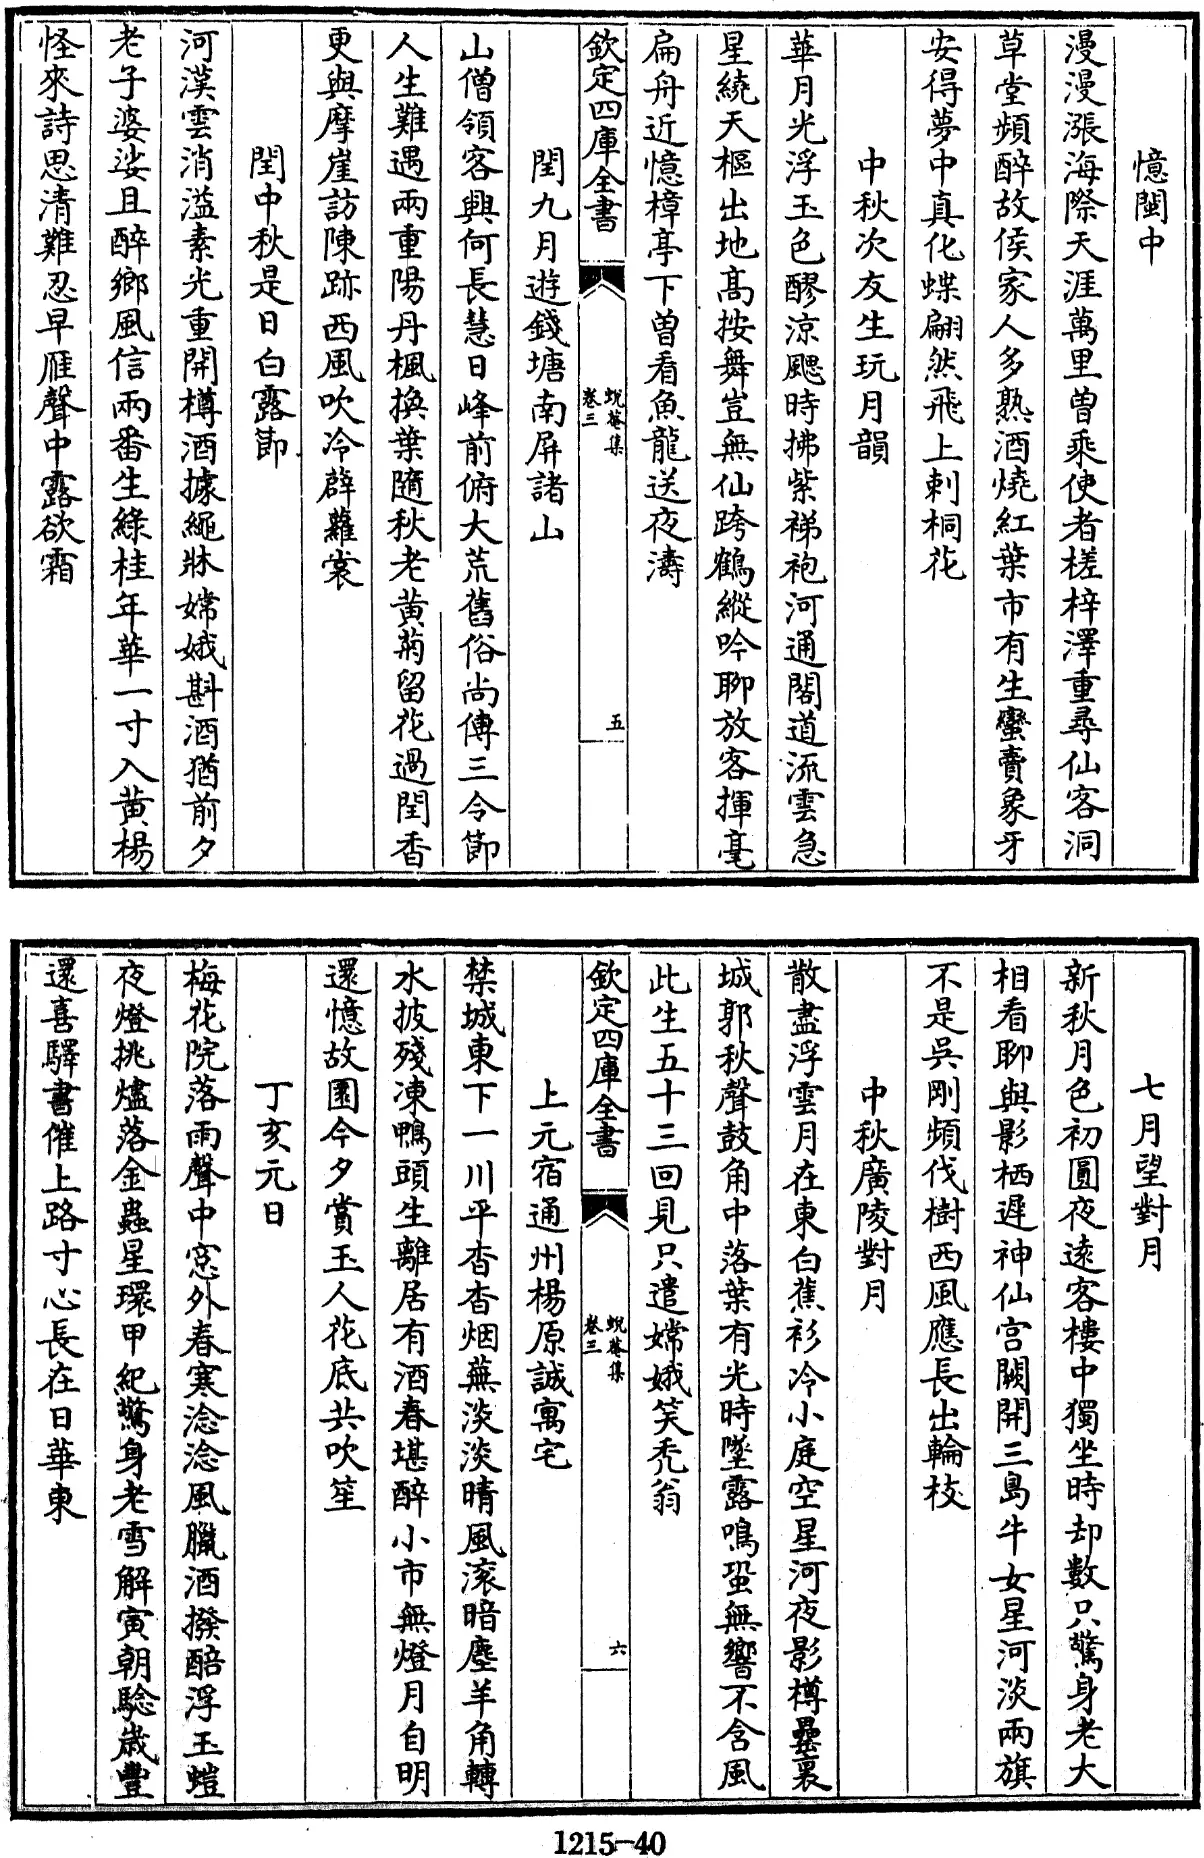 憶閩中
漫漫漲海際天涯萬里曾乘使者槎梓澤重尋仙客洞
草堂頻醉故侯家人多熟酒燒紅葉市有生蠻賣象牙
安得夢中真化蝶翩然飛上刺桐花
中秋次友生玩月韻
華月光浮玉色醪涼颸時拂紫綈袍河通閣道流雲急
星繞天樞出地髙按舞豈無仙跨鶴縱吟聊放客揮毫
扁舟近憶樟亭下曽看魚龍送夜濤
欽定四庫全書
蛻菴集
卷三
五
閏九月遊錢塘南屏諸山
山僧領客興何長慧日峰前俯大荒舊俗尚傳三令節
人生難遇兩重陽丹楓換葉隨秋老黃菊留花過閏香
更與摩崖訪陳跡西風吹冷薜蘿裳
閏中秋是日白露節
河漢雲消溢素光重開樽酒據繩牀嫦娥斟酒猶前夕
老子婆娑且醉鄉風信兩番生綠桂年華一寸入黃楊
怪來詩思清難忍早雁聲中露欲霜
七月望對月
新秋月色初圓夜逺客樓中獨坐時却數只驚身老大
相看聊與影栖遲神仙宫闕開三島牛女星河淡兩旗
不是吳剛頻伐樹西風應長出輪枝
中秋廣陵對月
散盡浮雲月在東白蕉衫冷小庭空星河夜影樽罍裏
城郭秋聲鼓角中落葉有光時墜露鳴蛩無響不含風
此生五十三回見只遣嫦娥笑禿翁
欽定四庫全書
蛻菴集
卷三
六
上元宿通州楊原誠寓宅
禁城東下一川平杳杳烟蕪淡淡晴風滚暗塵羊角轉
水披殘凍鴨頭生離居有酒春堪醉小市無燈月自明
還憶故園今夕賞玉人花底共吹笙
丁亥元日
梅花院落雨聲中窓外春寒淰淰風臘酒撥醅浮玉螘
夜燈挑燼落金蟲星環甲紀驚身老雪解寅朝騐歲豐
還喜驛書催上路寸心長在日華東
1215-40